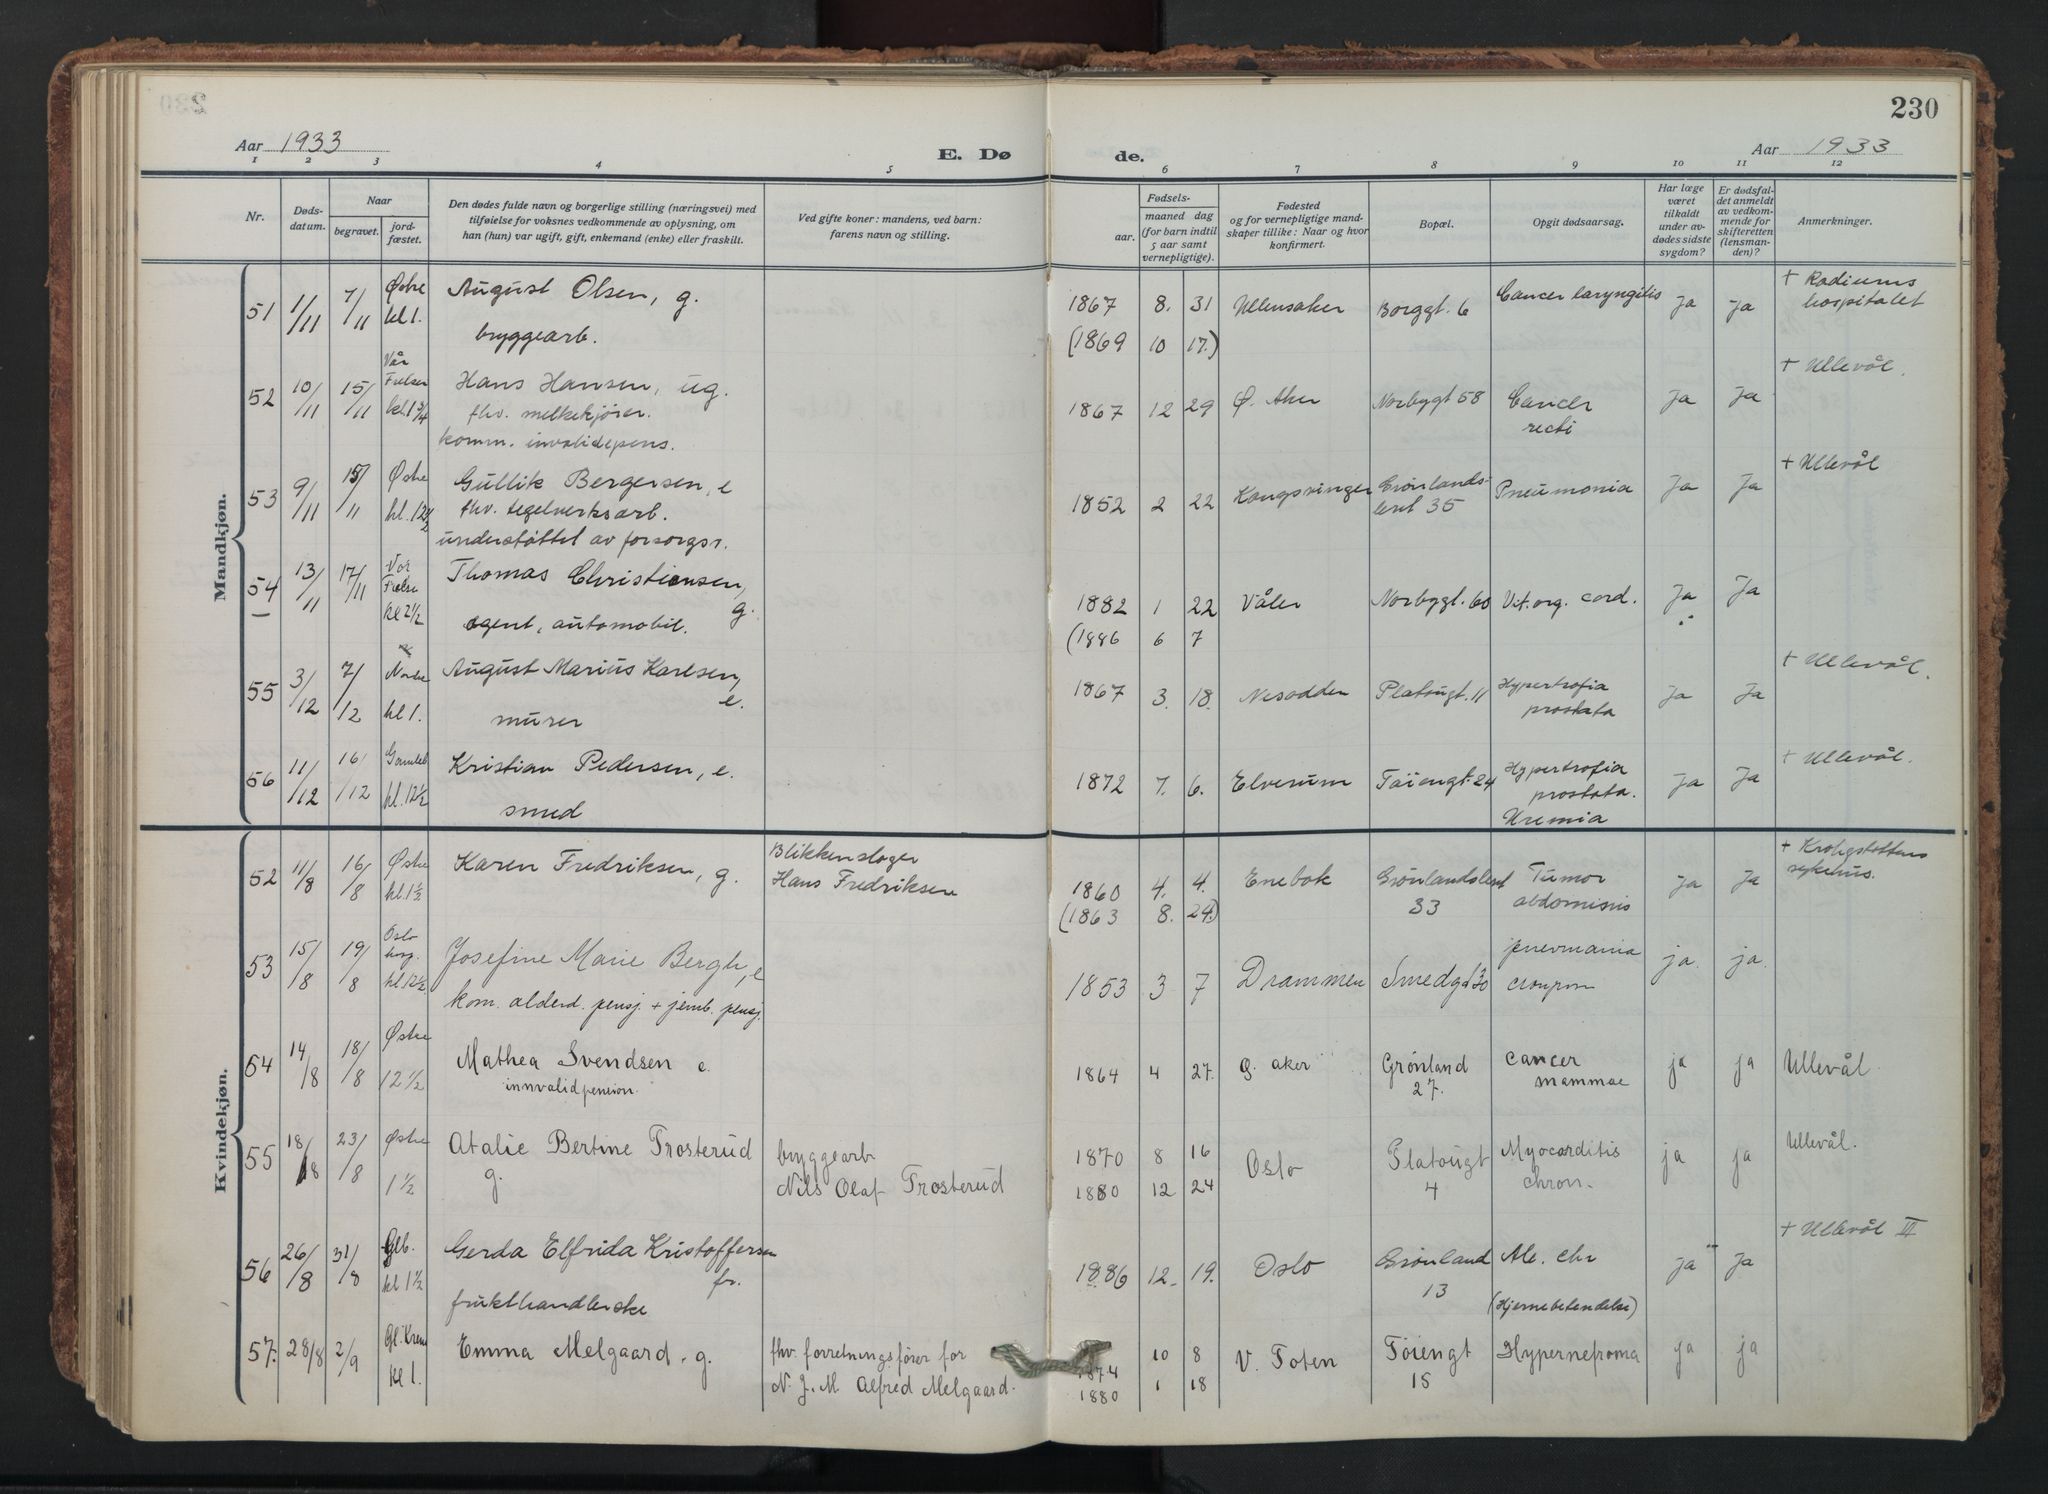 230
Aar 1933
E. Dø
de.
Aar 1933
1 2 3 4 5 6 7 8 9 10 11 12
Nr.
Døds-
datum.
Naar
begravet.
jord-
fæstet.
Den dødes fulde navn og borgerlige stilling (næringsvei) med
tilføielse for voksnes vedkommende av oplysning, om
han (hun) var ugift, gift, enkemand (enke) eller fraskilt.
Ved gifte koner: mandens, ved barn:
farens navn og stilling.
Fødsels-
aar.
maaned dag
(for barn indtil
5 aar samt
vernepligtige).
Fødested
og for vernepligtige mand-
skaper tillike: Naar og hvor
konfirmert.
Bopæl.
Opgit dødsaarsag.
Har læge
været
tilkaldt
under av-
dødes sidste
sygdom?
Er dødsfal-
det anmeldt
av vedkom-
mende for
skifteretten
(lensman-
den)?
Anmerkninger.
Mandkjøn.
51 1/11 7/11 Østre kl 1.
August Olsen, g.
bryggearb.
1867 8. 31 Ullensaker Borggt. 6 Cancer laryngitis ja ja + Radiums
hospitalet
(1869 10 17.)
52 10/11 15/11 Vår Frelser kl. 1 3/4
Hans Hansen, ug.
fhv. melkekjører.
komm. invalidepens.
1867 12 29 Ø. Aker Norbygt 58 Cancer
recti
ja ja + Ullevål.
53 9/11 15/11 Østre kl. 12 1/2
Gullik Bergersen, e
fhv. teglverksarb.
understøttet av forsorgsv.
1852 2 22 Kongsvinger Grønlands-
leret 35
Pneumonia ja ja + Ullevål
54 13/11 17/11 Vor Frelser kl 2 1/2
Thomas Christiansen,
g.
agent, automobil.
1882 1 22 Våler Norbygt. 60 Vit. org. cord. ja ja
(1886 6 7
55 3/12 7/12 Nordre kl 1.
August Marius Karlsen,
e.
murer
1867 3. 18. Nesodden Platougt. 11 Hypertrofia
prostata
ja ja + Ullevål.
56 11/12 16/12 Gamleb kl. 12 1/2
Kristian Pedersen, e.
smed
1872 7. 6. Elverum Tøiengt. 24 Hypertrofia
prostata.
Uremia
ja ja + Ullevål.
Kvindekjøn.
52 11/8 16/8 Østre kl. 1 1/2
Karen Fredriksen, g.
Blikkenslager
Hans Fredriksen
1860 4. 4. Enebak Grønlandsleret
33
Tumor
abdominis
ja ja + Krohgstøttens
sykehus.
(1863 8. 24.)
53 15/8 19/8 Oslo kl 12 1/2
Josefine Marie Bergh, e
kom. alderd. pensj. + jernb. pensj.
1853 3 7 Drammen Smedgt 30 pnevmania
croupon
ja. ja.
54 14/8 18/8 Østre 12 1/2
Mathea Svendsen e.
innvalidpension.
1864 4 27. Ø. aker Grønland
27.
cancer
mammae
ja ja Ullevål.
55 18/8 23/8 Østre 1 1/2
Atalie Bertine Trosterud
g.
bryggearb
Nils Olaf Trosterud
1870 8 16 Oslo Platougt
4
Myocarditis
chron.
ja ja Ullevål.
1880 12 24
56 26/8 31/8 Glb. kl 1 1/2
Gerda Elfrida Kristoffersen
fr.
frukthandlerske
1886 12 19. Oslo Grønland
13
chr
(Hjernebetendelse)
ja ja + Ullevål VI
57. 28/8 2/9 Gl. Krem kl 1.
Emma Melgaard. g.
fhv. forretningsfører for
N. J. M Alfred Melgaard.
1874 10 8 V. Toten Tøiengt
15
Hypernefroma ja ja
1880 1 18